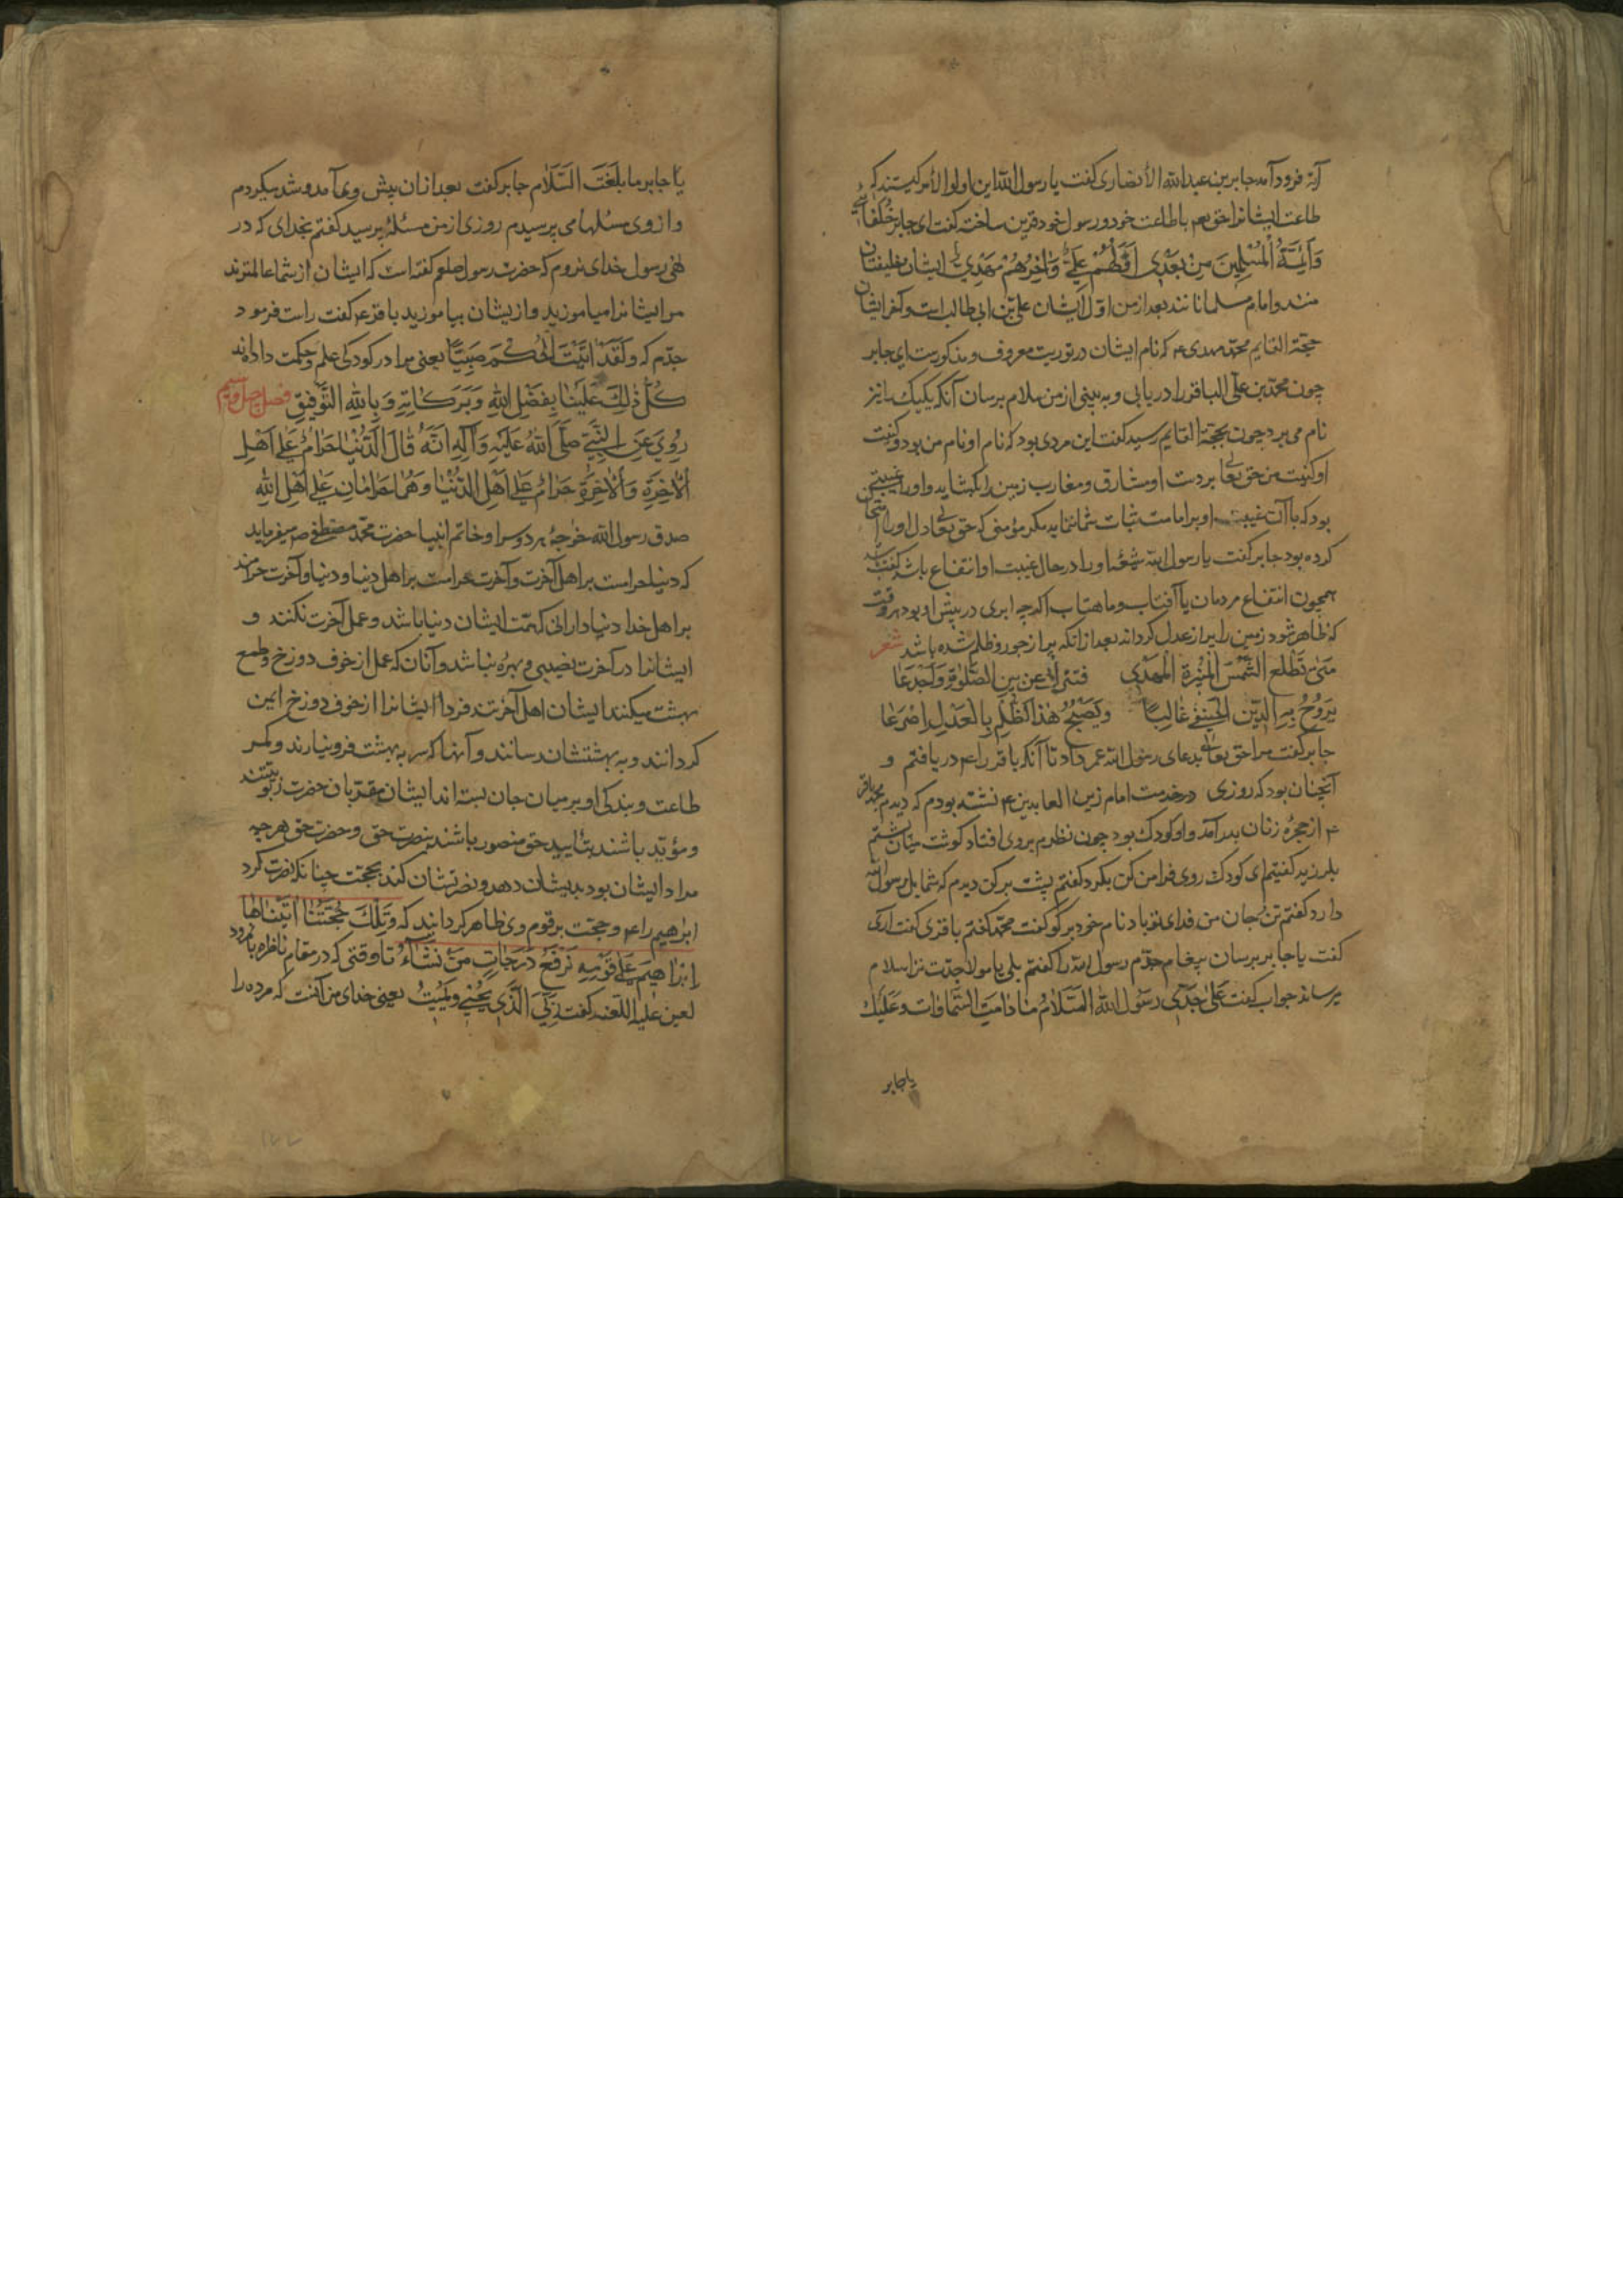 آیه فرود آمد جابر بن عبدالله الأنصاری گفت یا رسول الله این اولوا الأمر کیستند که
طاعت ایشانرا حق تعم با طاعت خود و رسول خود قرین ساخته گفت ای جابر خُلَفائی
وَاَئِمَّةُ الْمُسْلِمِینَ مِنْ بَعْدِی اَوَّلُهُمْ عَلِیٌّ وَآخِرُهُمْ مَهْدِیٌّ ایشان خلیفتان
منند و امام مسلمانانند بعد از من اوّل ایشان علی بن ابی طالب است و آخر ایشان
حجّة القایم محمّد مهدی ع که نام ایشان در توریت معروف و مذکورست ای جابر
چون محمّد بن علی الباقر را دریابی و به بینی از من سلام برسان آنکه یکیک را نیز
نام می برد چون بحجّة القایم رسید گفت این مردی بود که نام او نام من بود و کنیت
او کنیت من حق تعا بر دست او مشارق و مغارب زمین را بکشاید و او را غیبتی
بود که با آن غیبت او بر امامت ثبات ننماید مکر مؤمنی که حق تعا دل او را امتحان
کرده بود جابر گفت یا رسول الله شیعهٔ او را در حال غیبت او انتفاع باشد گفت
همچون انتفاع مردمان با آفتاب و ماهتاب اکرچه ابری در پیش او بود هر وقت
که ظاهر شود زمین را پر از عدل کرداند بعد از آنکه پر از جور و ظلم شده باشد شعر
مَتیٰ تَطْلُعُ الشَّمْسُ الْمُنِیْرَةُ الْمَهْدِی
یَرُوْحُ بِهِ الدِّیْنِ الْحَنِیْفِیِّ غَالِبًا وَیُصْبِحُ هٰذَا الظُّلْمِ بِالْعَدْلِ
جابر گفت مرا حق تعالی بدعای رسول الله عمر داد تا آنکه باقر را ع دریافتم و
آنچنان بود که روزی در خدمت امام زین العابدین ع نشسته بودم که دیدم محمد باقر
ع از حجرهٔ زنان بدر آمد و او کودک بود چون نظرم بر وی افتاد کوشت میان پشتم
بلرزید گفتم ای کودک روی فرا من کن بکرد گفتم پشت بر کن دیدم که شمایل رسول الله
دارد گفتم تن و جان من فدای تو باد نام خود بر گو گفت محمّد گفتم باقری گفت آری
گفت یا جابر برسان پیغام جدّم رسول الله را گفتم بلی یا مولا جدّت ترا سلام
میرساند جواب گفت عَلیٰ جَدِّی رَسُوْلِ اللهِ السَّلَامُ مَا دَامَتِ السَّمَاوَات وَعَلَیْكَ
یا جابر
یَا جابر ما بَلَغْتَ السَّلَام جابر گفت بعد از آن پیش وی آمد و شد میکردم
و از وی مسئلها می پرسیدم روزی از من مسئلهٔ پرسید گفتم بخدای که در
نهی رسول خدای نروم که حضرت رسول صلعم گفته است که ایشان از شما عالمترند
مر ایشانرا میاموزید و از یشان بیاموزید باقر ع گفت راست فرمود
جدّم که وَلَقَدْ اٰتَیْتَ الْحُکْمَ صَبِیًّا یعنی مرا در کودکی علم و حکمت داده‌اند
کُلُّ ذٰلِكَ عَلَیْنَا بِفَضْلِ اللهِ وَبَرَکَاتِهِ وَبِاللهِ التَّوْفِیْقِ فصل
رُوِیَ عَنِ النَّبِیِّ صَلَّی اللهُ عَلَیْهِ وَآلِهِ اَنَّهُ قَالَ الدُّنْیَا حَرَامٌ عَلیٰ اَهْلِ
اْلآخِرَةِ وَاْلآخِرَةُ حَرَامٌ عَلیٰ اَهْلِ الدُّنْیَا وَهُمَا حَرَامَانِ عَلیٰ اَهْلِ اللهِ
صدق رسول الله خواجهٔ هر دو سرا و خاتم انبیا حضرت محمّد مصطفی ص میفرماید
که دنیا حرامست بر اهل آخرت و آخرت حرامست بر اهل دنیا و دنیا و آخرت حرامند
بر اهل خدا دنیا دارانی که همّت ایشان دنیا باشد و عمل آخرت نکنند و
ایشانرا در آخرت نصیبی و بهرهٔ نباشد و آنان که عمل از خوف دوزخ و طمع
بهشت میکنند ایشان اهل آخرتند فردا ایشانرا از خوف دوزخ ایمن
کردانند و به بهشتشان رسانند و آنها که سر به بهشت فرو نیارند و کمر
طاعت و بندکی او بر میان جان بسته اند ایشان مقرّبان حضرت ربوبیتند
و مؤیّد باشند بتأیید حق منصور باشند بنصرت حق و حضرت حق هر چه
مراد ایشان بود بدیشان دهد و نصرتشان کند بحجّت چنانکه نصرت کرد
ابرٰهیم را ع و حجّت بر قوم وی ظاهر کردانید که وَتِلْكَ حُجَّتُنَا اٰتَیْنَاهَا
اِبْرَاهِیْمَ عَلیٰ قَوْمِهِ نَرْفَعُ دَرَجَاتٍ مَنْ نَشَآءُ تا وقتی که در مقام ناظره با نمرود
لعین علیه اللّعنه گفت رَبِّیَ الَّذِی یُحْیِیْ وَیُمِیْتُ یعنی خدای من آنست که مرده را
۱۷۷